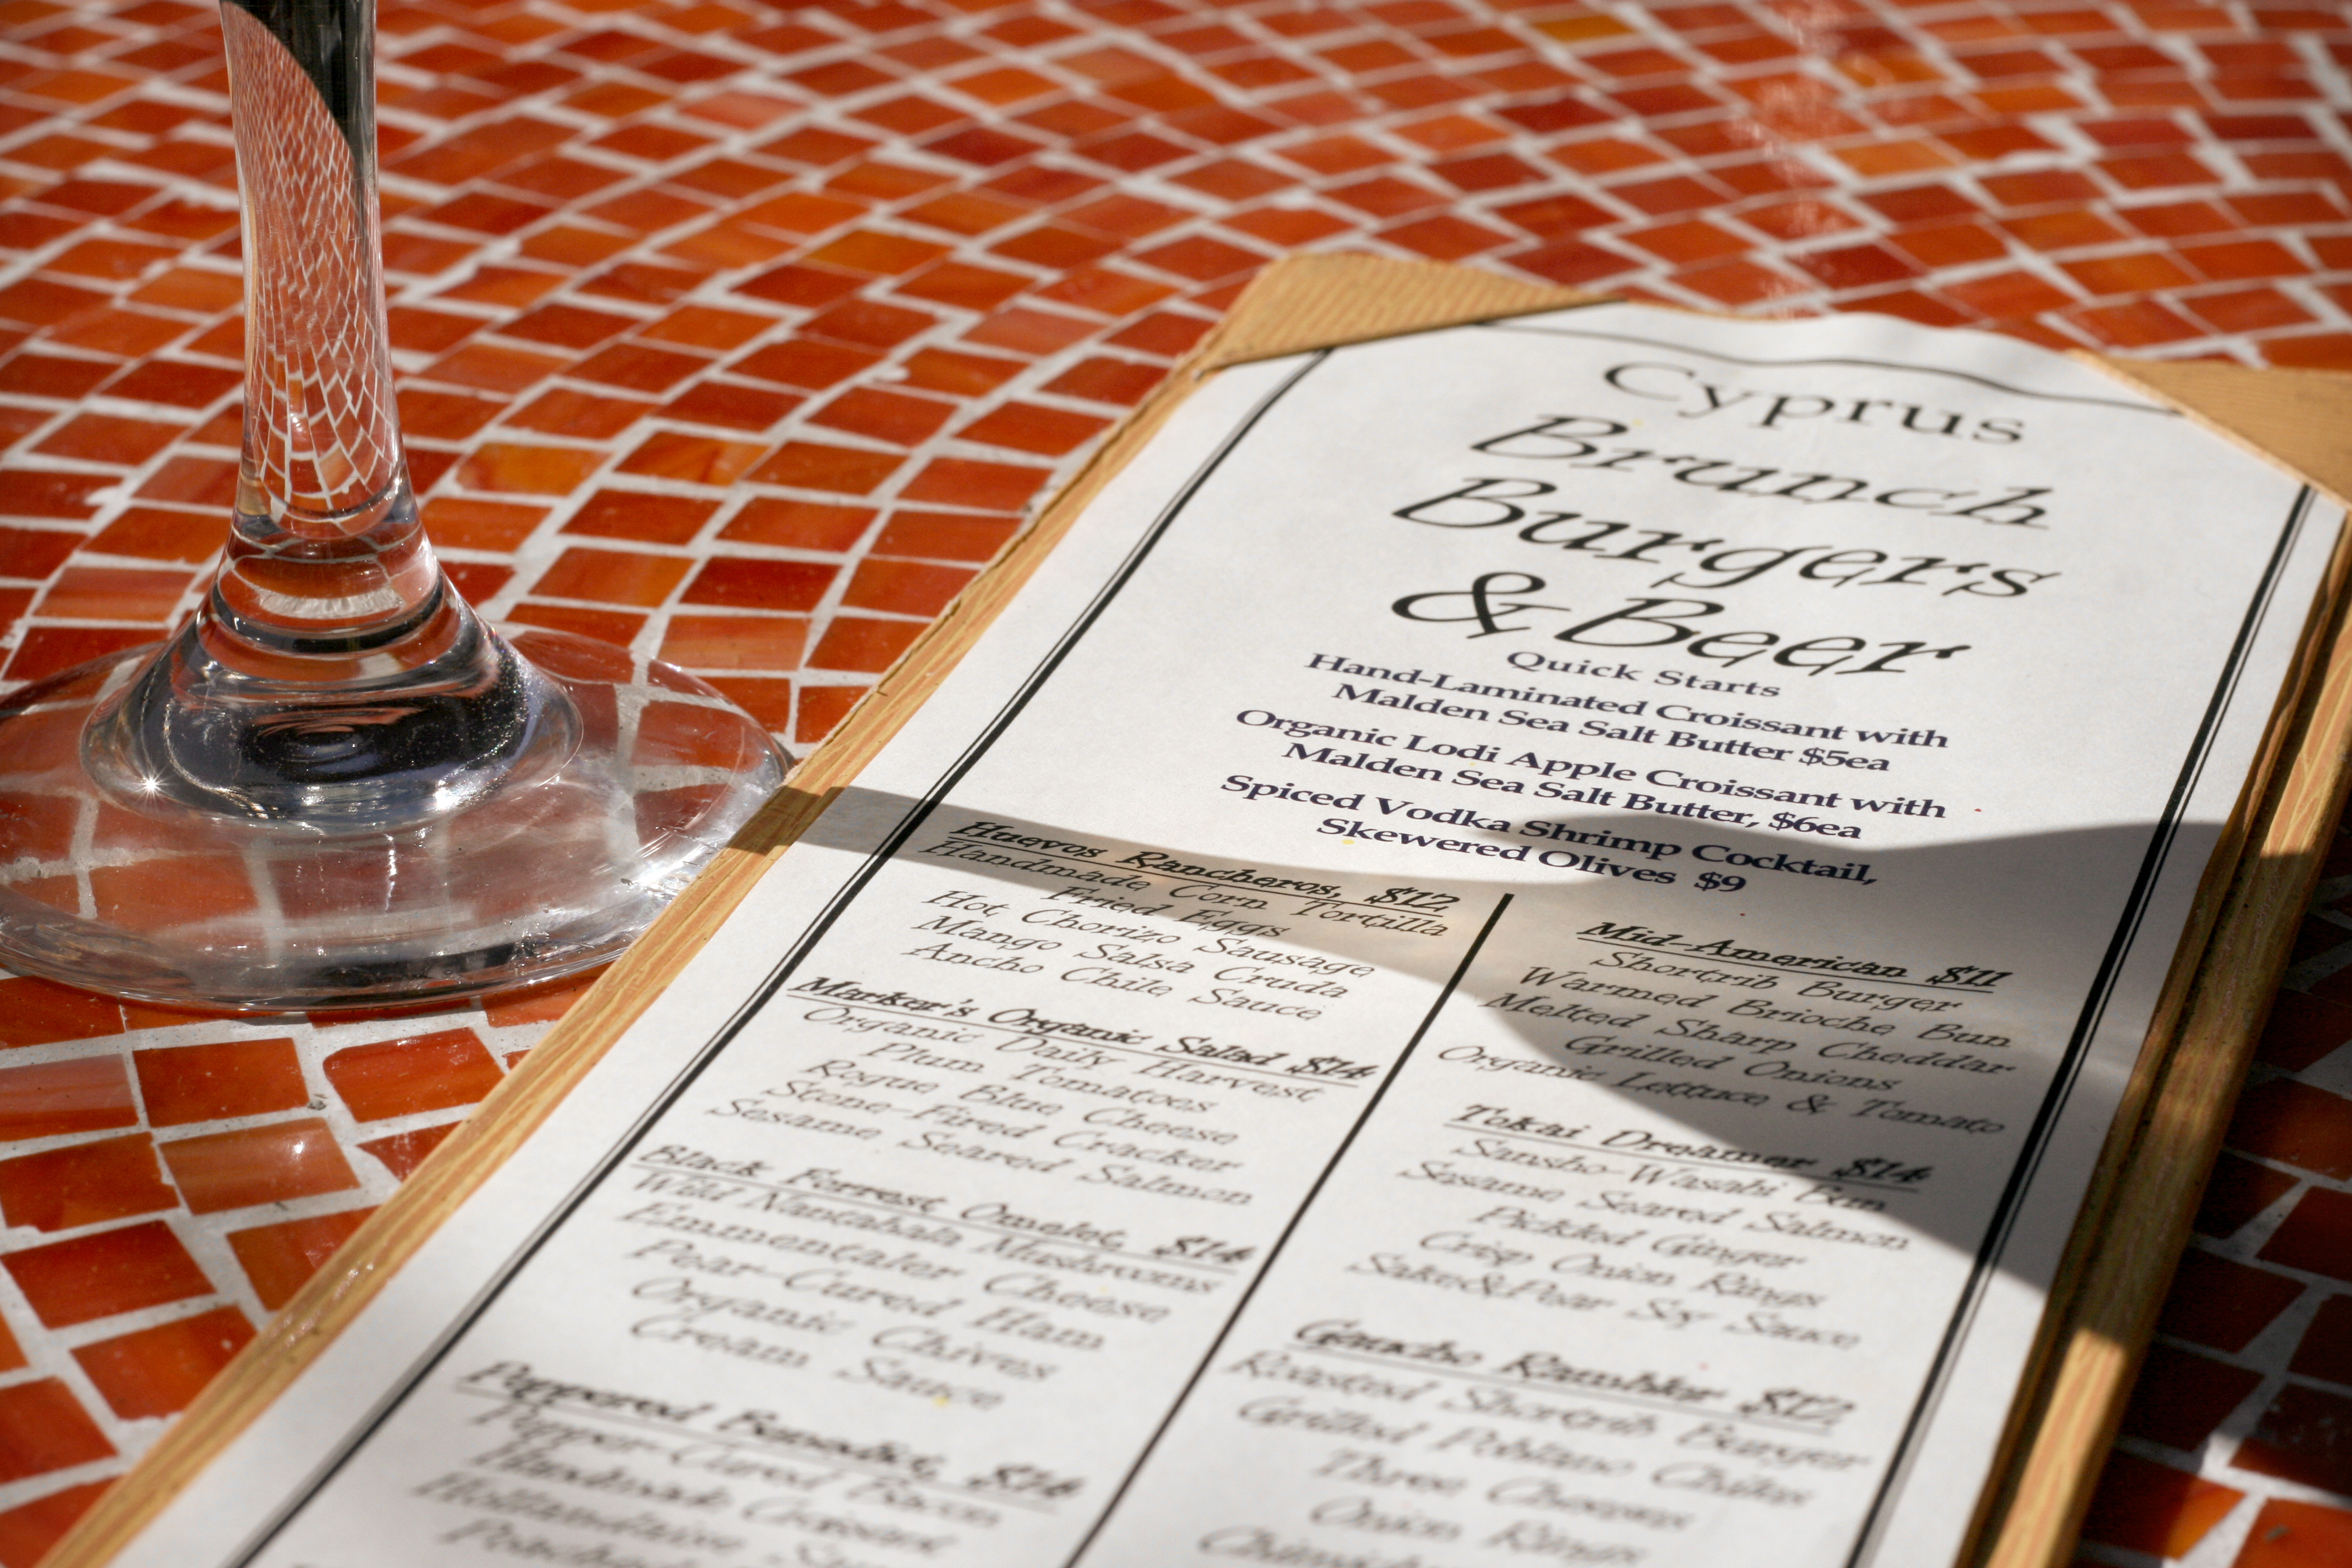 Cyprus
Brunch
Burgers
& Beer
Quick Starts
Hand-Laminated Croissant with
Malden Sea Salt Butter $5ea
Organic Lodi Apple Croissant with
Malden Sea Salt Butter, $6ea
Spiced Vodka Shrimp Cocktail,
Skewered Olives $9
Huevos Rancheros, $12
Handmade Corn Tortilla
Fried Eggs
Hot Chorizo Sausage
Mango Salsa Cruda
Ancho Chile Sauce
Marker's Organic Salad $14
Organic Daily Harvest
Plum Tomatoes
Rogue Blue Cheese
Stone-Fired Cracker
Sesame Seared Salmon
Black Forrest Omelet, $14
Wild Nantahala Mushrooms
Emmentaler Cheese
Pear-Cured Ham
Organic Chives
Cream Sauce
Peppered Benedict,
Pepper-Cured Bacon
Handmade Croissant
Hollandaise
Mid-American $11
Shortrib Burger
Warmed Brioche Bun
Melted Sharp Cheddar
Grilled Onions
Organic Lettuce & Tomato
Tokai Dreamer $14
Sansho-Wasabi Bun
Sesame Seared Salmon
Pickled Ginger
Crisp Onion Rings
Sake&Pear Soy Sauce
Gaucho Rambler $12
Roasted Shortrib Burger
Grilled Poblano Chiles
Three Cheeses
Onion Rings